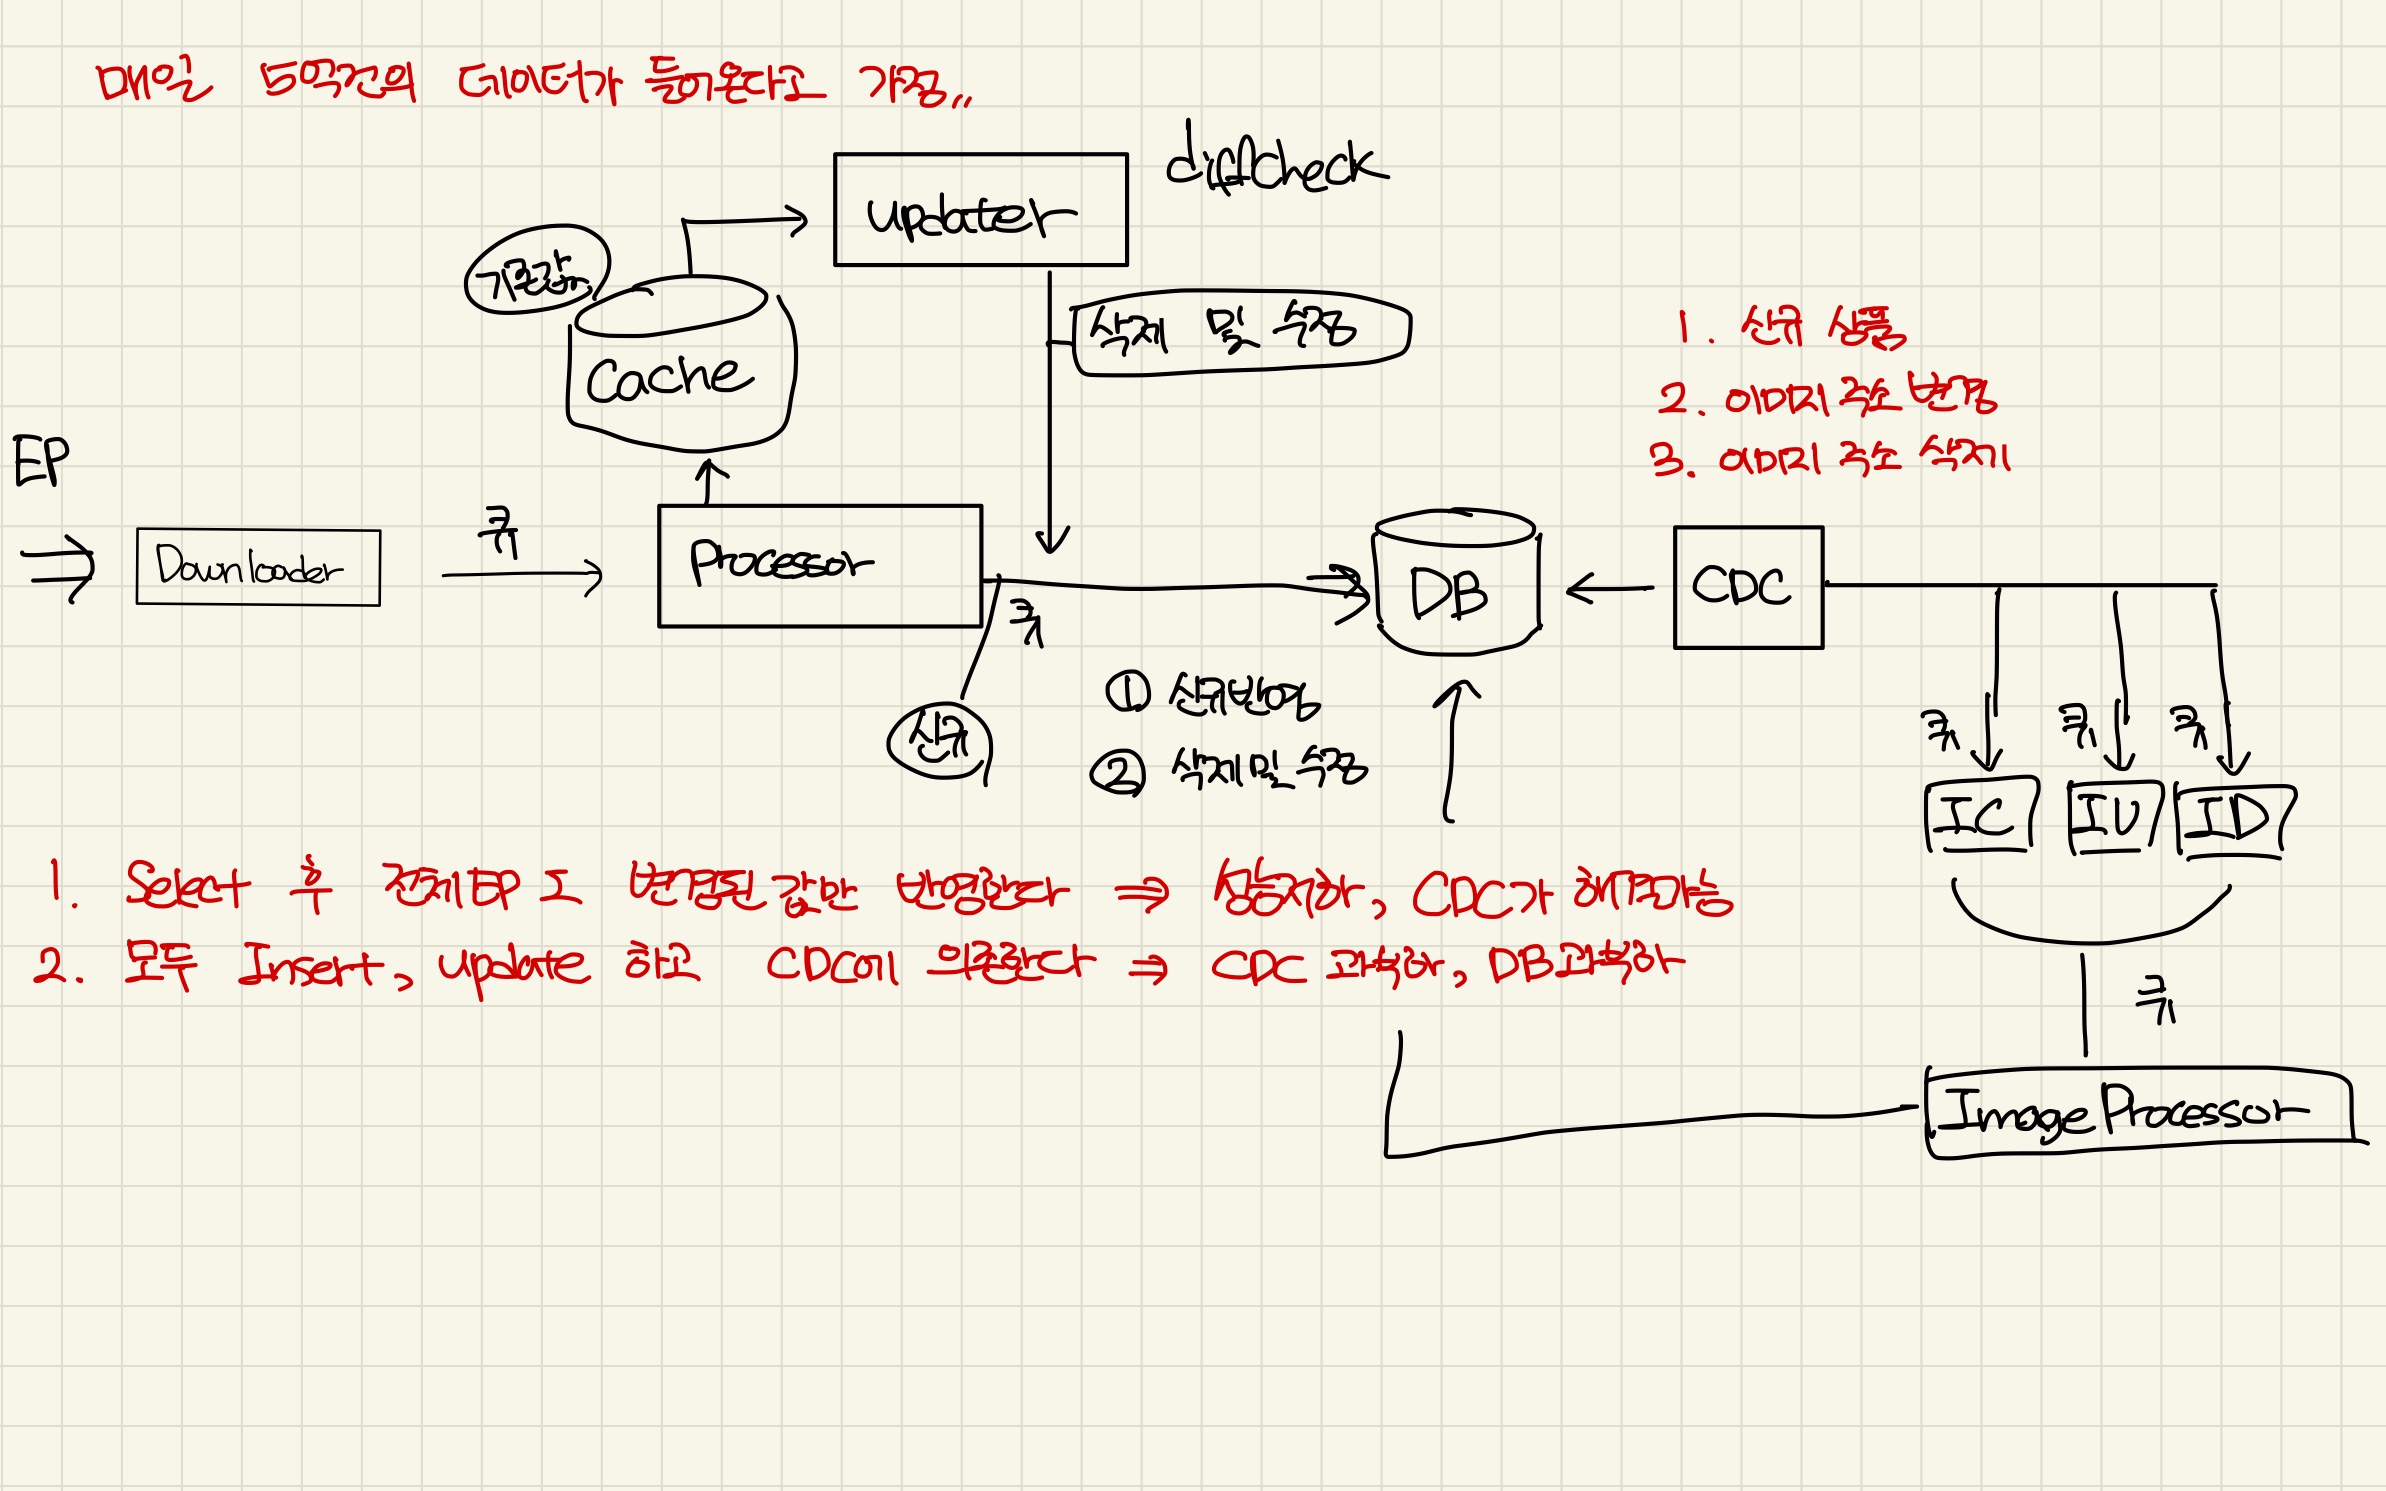 매일 5억건의 데이터가 들어온다고 가정,,
diffcheck
updater
기존값
Cache
삭제 및 수정
1. 신규 상품
2. 이미지 주소 변경
3. 이미지 주소 삭제
EP
Downloader
큐
Processor
큐
DB
CDC
신규
① 신규반영
② 삭제및 수정
큐
큐
큐
IC
IU
ID
1. Select 후 전체EP 조 변경된 값만 반영한다 ⇒ 성능저하, CDC가
2. 모두 Insert, update 하고 CDC에 의존한다 ⇒ CDC 과부하, DB과부하
큐
Image Processor